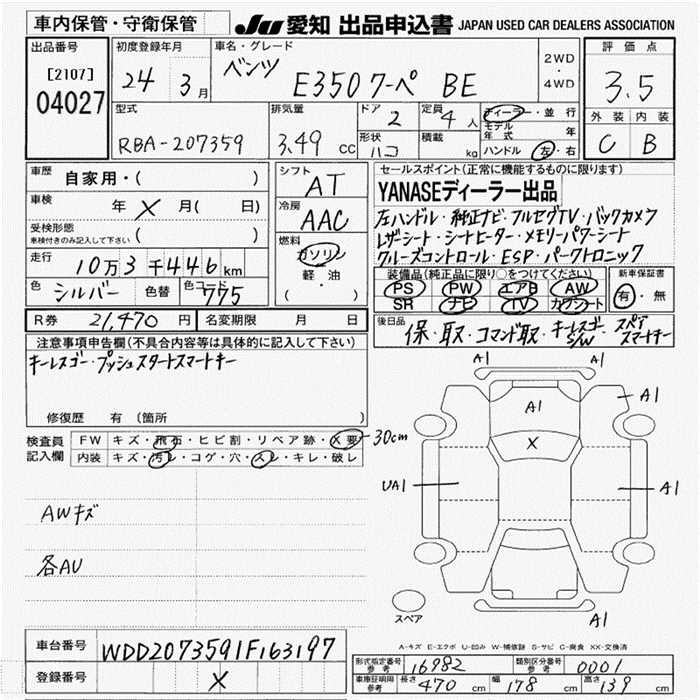 車内保管・守衛保管
JU 愛知 出品申込書 JAPAN USED CAR DEALERS ASSOCIATION
出品番号 [2107] 04027
初度登録年月 24年 3月
車名・グレード ベンツ E350クーペ BE
2WD・4WD
評価点 3.5
外装 内装
C B
型式 RBA-207359
排気量 3.49 CC
ドア 2
形状 ハコ
定員 4人
積載 kg
ディーラー・並行
モデル年式 年
ハンドル 左・右
車歴 自家用・( )
車検 年 X 月( 日)
受検形態 車検付きのみ記入して下さい ( )
走行 10万3千446km
色 シルバー 色替 色コード 775
シフト AT
冷房 AAC
燃料 ガソリン
軽・油
( )
セールスポイント(正常に機能するものに限ります)
YANASEディーラー出品
左ハンドル・純正ナビ・フルセグTV・バックカメラ
レザーシート・シートヒーター・メモリーパワーシート
クルーズコントロール・ESP・パークトロニック
装備品(純正品に限り○をつけてください)
PS PW エアB AW
SR ナビ TV カワシート
新車保証書
有・無
R券 21,470 円 名変期限 月 日
後日品 保・取・コマンド取・キーレスゴーS/W・スペアスマートキー
注意事項申告欄(不具合内容等は具体的に記入して下さい)
キーレスゴー・プッシュスタートスマートキー
修復歴 有 (箇所 )
検査員記入欄
FW キズ・飛石・ヒビ割・リペア跡・X要 30cm
内装 キズ・汚レ・コゲ・穴・スレ・キレ・破レ
AWキズ
各AU
A1
A1
A1
A1
X
UA1
A1
A1
スペア
A-キズ E-エクボ U-凹み W-補修跡 S-サビ C-腐食 XX-交換済
車台番号 WDD2073591F163197
登録番号 X
形式指定番号 参考 16982 類別区分番号 参考 0001
車庫証明用 参考 長さ 470 cm 幅 178 cm 高さ 139 cm